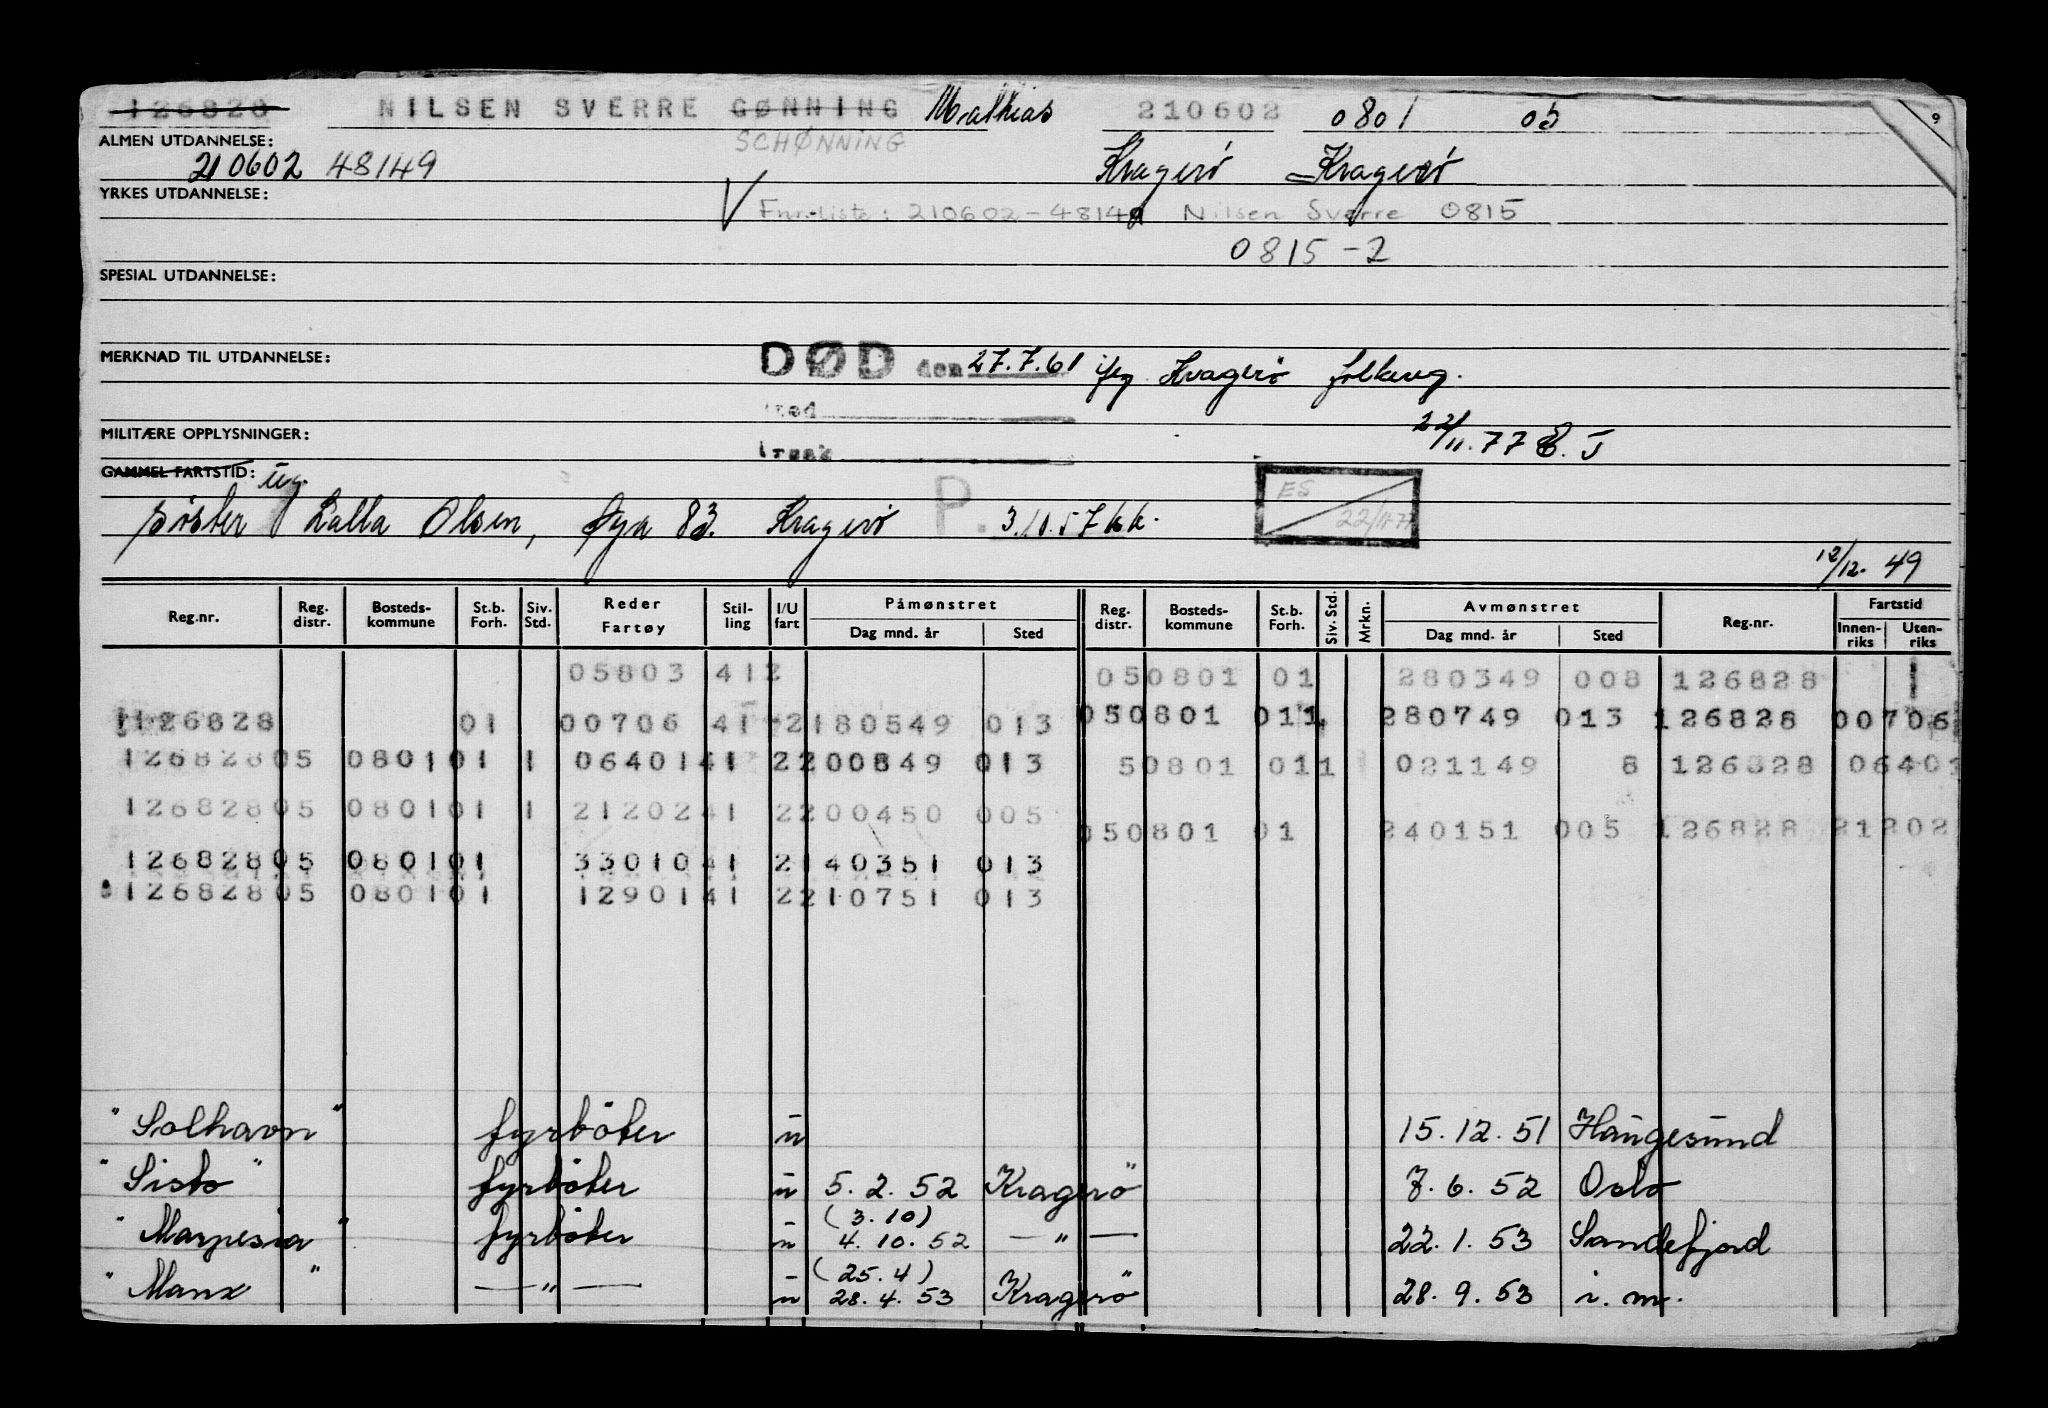 126828 NILSEN SVERRE GØNNING Mathias 210602 0801 05 9
ALMEN UTDANNELSE: SCHØNNING
210602 48149 Kragerö Kragerö
YRKES UTDANNELSE:
√ Fnr.liste: 210602-48149 Nilsen Sverre 0815
0815-2
SPESIAL UTDANNELSE:
MERKNAD TIL UTDANNELSE: DØD den 27.7.61 iføg Kragerö folkreg.
MILITÆRE OPPLYSNINGER: 22/11.77 E.J
GAMMEL FARTSTID: ug.
søster Lalla Olsen, Øya 83. Kragerö P. 3.10.57 kk. ES 22/11-77
12/12. 49
Reg.nr. Reg. distr. Bosteds-kommune St.b. Forh. Siv. Std. Reder Fartøy Stil-ling I/U fart Påmønstret Dag mnd. år Sted Reg. distr. Bosteds-kommune St.b. Forh. Siv. Std. Mrkn. Avmønstret Dag mnd. år Sted Reg.nr. Fartstid Innen-riks Uten-riks
05803 412 050801 01 280349 008 126828 1
126828 01 00706 41 2180549 013 050801 011 280749 013 126828 00706
12682805 080101 1 0640141 2200849 013 50801 011 021149 8 126828 06401
12682805 080101 1 2120241 2200450 005 050801 01 240151 005 126828 21202
12682805 080101 3301041 2140351 013
12682805 080101 1290141 2210751 013
"Solhavn" fyrböter u 15.12.51 Haugesund
"Sisto" fyrböter u 5.2.52 Kragerö 7.6.52 Oslo
"Marpesia" fyrböter u (3.10) 4.10.52 —"— 22.1.53 Sandefjord
"Manx" —"— u (25.4) 28.4.53 Kragerö 28.9.53 i.m.